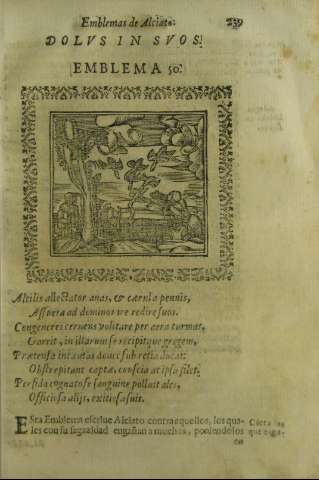 Emblemas de Alciato. 239
DOLVS IN SVOS.
EMBLEMA 50.
Altilis allectator anas, & cærula pennis,
Assueta ad dominos ire redire suos.
Congeneres cernens volitare per aera turmas,
Garrit, in illarum se recipitque gregem,
Prætensa incautas donec sub retia ducat:
Obstrepitant captæ, conscia at ipsa silet.
Perfida cognato se sanguine polluit ales,
Officiosa alijs, exitiosa suis.
ESta Emblema escriue Alciato contra aquellos, los qua-
les con su sagazidad engañan a muchos, poniendolos
en
que